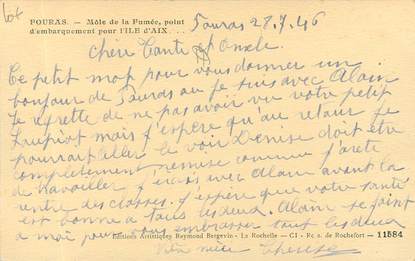 Lot
FOURAS. — Môle de la Fumée, point
d'embarquement pour l'ILE d'AIX . . .
Fouras 28.7.46
Cher Tante et Oncle
Ce petit mot pour vous donner un
bonjour de Fouras ou je suis avec Alain
Je regrette de ne pas avoir vu votre petit
mais j'espère qu'au retour je
pourrait aller le voir Denise doit être
complètement remise comme j'arete
de travailler j'irais avec Alain avant la
rentre des classes. J'espère que votre santé
est bonne a tous les deux. Alain se joint
a moi pour vous embrasser tout les deux
Editions Artistiques Raymond Bergevin - La Rochelle - Cl - Rc a. de Rochefort - 11584
nièce Therese